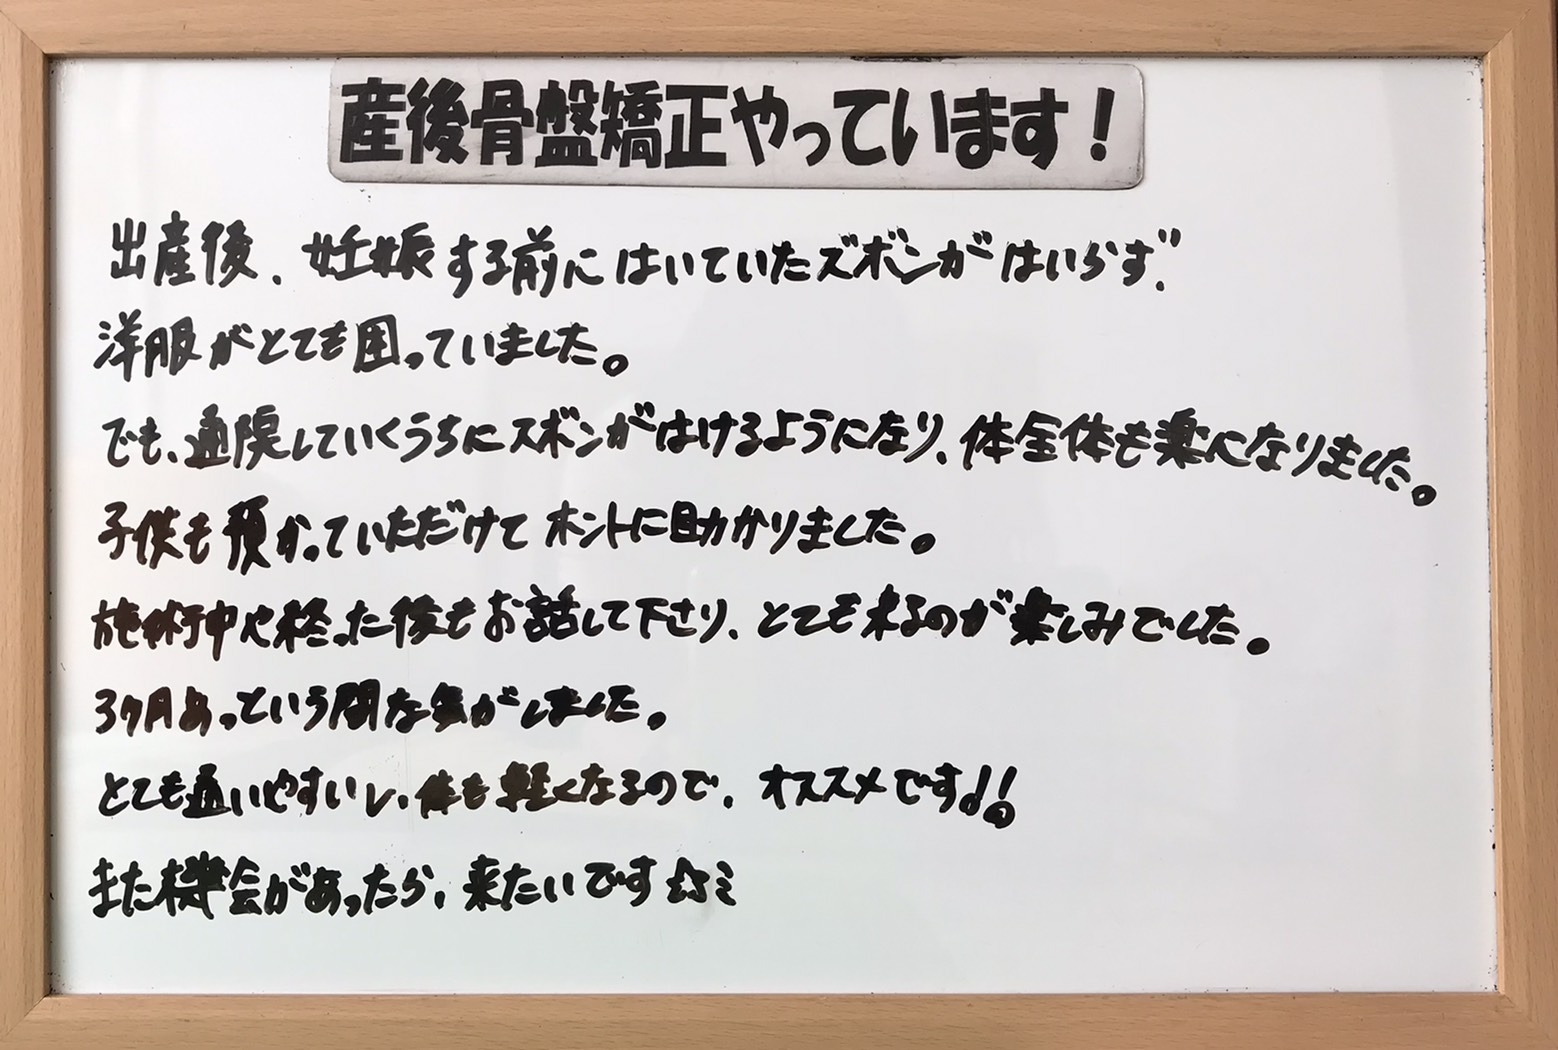 産後骨盤矯正やっています!
出産後、妊娠する前にはいていたズボンがはいらず、
洋服がとても困っていました。
でも、通院していくうちにズボンがはけるようになり、体全体も楽になりました。
子供も預かっていただだけて ホントに助かりました。
施術中や終った後もお話して下さり、とても来るのが楽しみでした。
3ヶ月あっという間な気がしました。
とても通いやすいし、体も軽くなるので、オススメです!!
また機会があったら、来たいです☆ミ